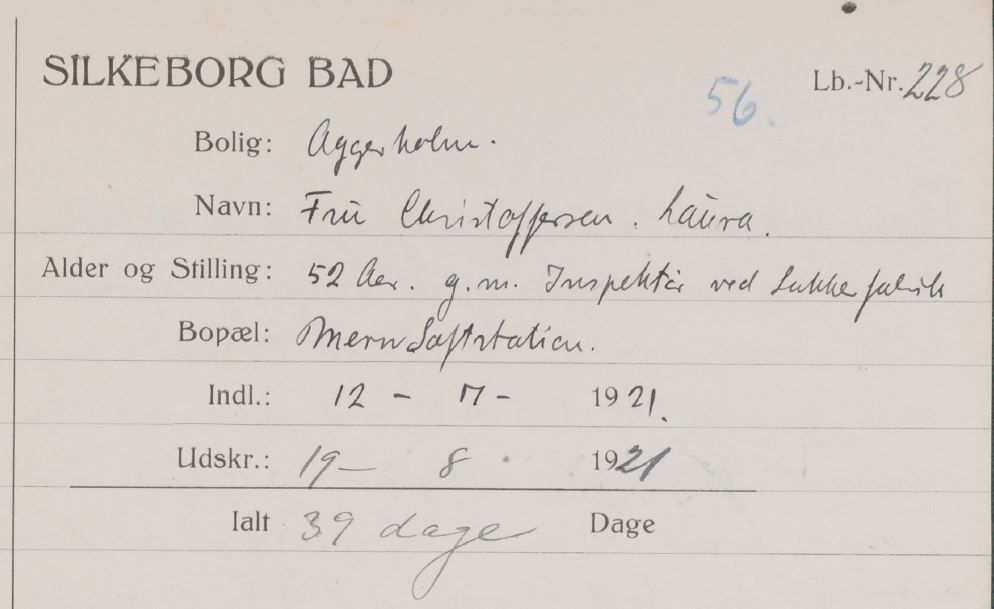 SILKEBORG BAD
56. Lb.-Nr. 228
Bolig: Aggerholm.
Navn: Fru Christoffersen. Laura.
Alder og Stilling: 52 Aar. g.m. Inspektør ved Sukkerfabrik
Bopæl: Mern Saftstation.
Indl.: 12 - 7 - 1921.
Udskr.: 19 - 8 1921
Ialt 39 dage Dage